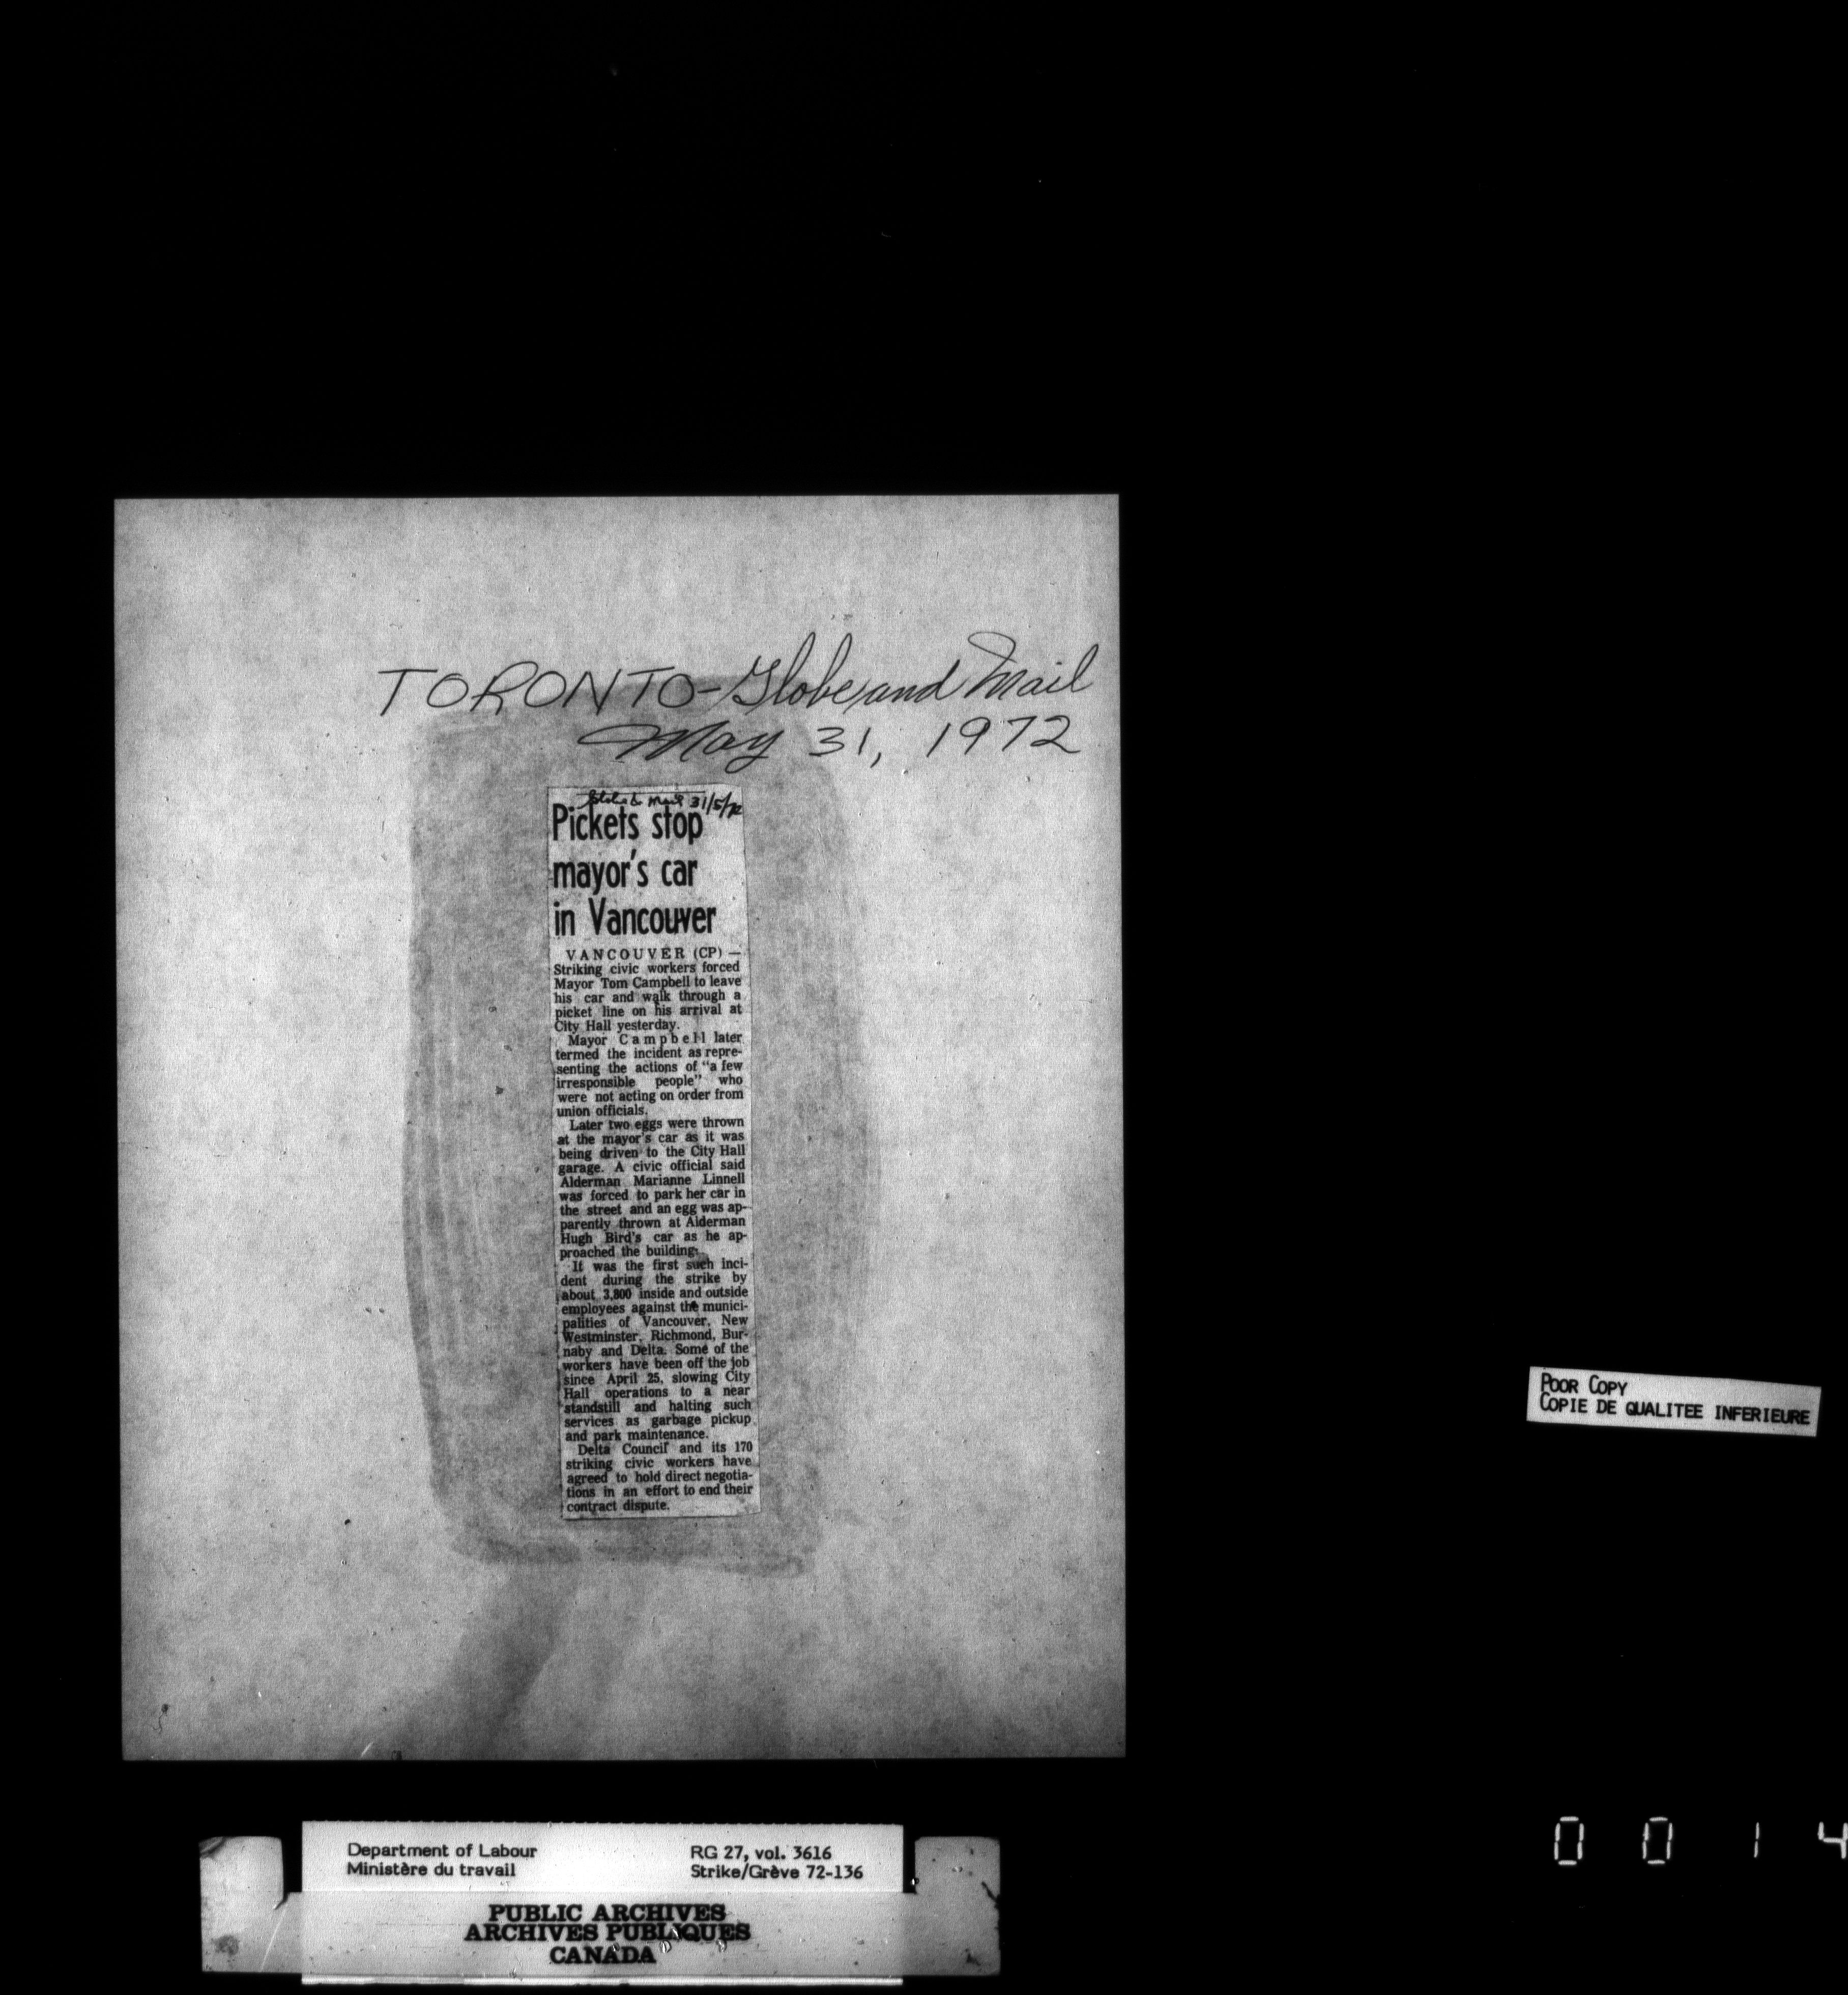 TORONTO - Globe and Mail
May 31, 1972
Globe & Mail 31/5/72
Pickets stop
mayor's car
in Vancouver
VANCOUVER (CP) —
Striking civic workers forced
Mayor Tom Campbell to leave
his car and walk through a
picket line on his arrival at
City Hall yesterday.
Mayor Campbell later
termed the incident as repre-
senting the actions of "a few
irresponsible people" who
were not acting on order from
union officials.
Later two eggs were thrown
at the mayor's car as it was
being driven to the City Hall
garage. A civic official said
Alderman Marianne Linnell
was forced to park her car in
the street and an egg was ap-
parently thrown at Alderman
Hugh Bird's car as he ap-
proached the building.
It was the first such inci-
dent during the strike by
about 3,800 inside and outside
employees against the munici-
palities of Vancouver, New
Westminster, Richmond, Bur-
naby and Delta. Some of the
workers have been off the job
since April 25, slowing City
Hall operations to a near
standstill and halting such
services as garbage pickup
and park maintenance.
Delta Council and its 170
striking civic workers have
agreed to hold direct negotia-
tions in an effort to end their
contract dispute.
POOR COPY
COPIE DE QUALITEE INFERIEURE
Department of Labour
Ministère du travail
RG 27, vol. 3616
Strike/Grève 72-136
PUBLIC ARCHIVES
ARCHIVES PUBLIQUES
CANADA
0 0 1 4